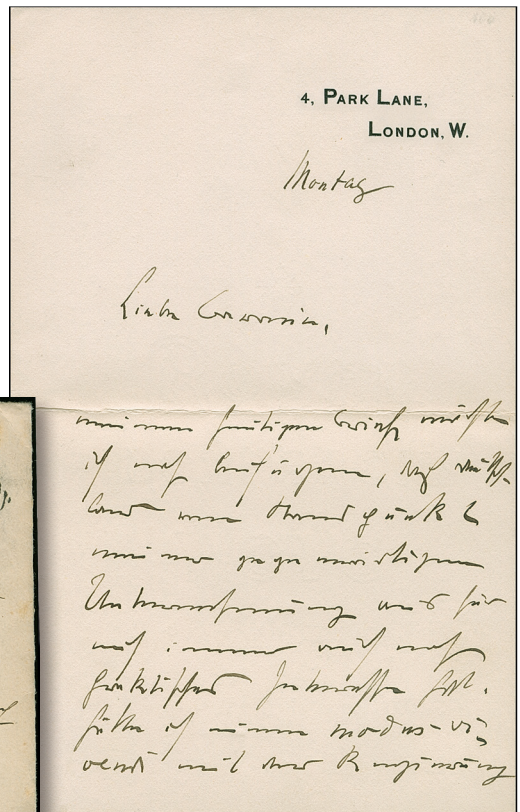 4, PARK LANE,
LONDON, W.
Montag
Liebe Baronin,
meinem heutigen Brief möchte
ich noch beifügen, daß Rußl-
land vom Standpunkt
meiner gegenwärtigen
Unternehmung aus für
mich immer auch noch
praktisches Interesse hat.
Hätte ich einen modus-vi-
vendi mit der Regierung